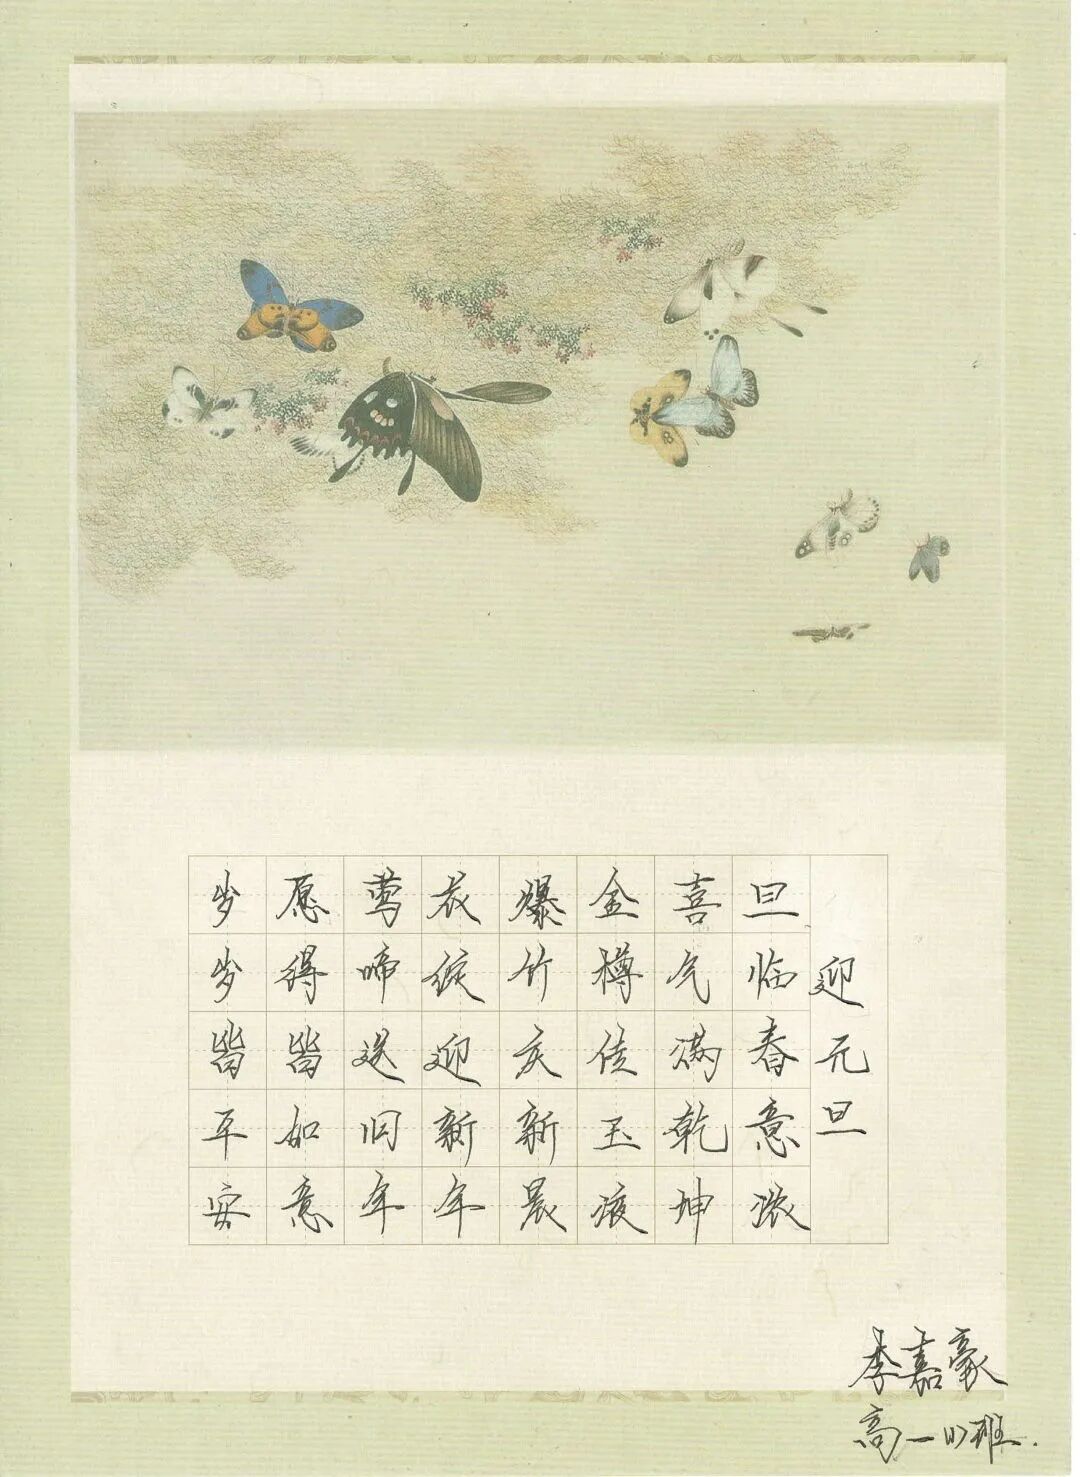 迎元旦
旦临春意浓
喜气满乾坤
金樽佳玉液
爆竹亥新晨
花绽迎新年
莺啼送旧年
愿得皆如意
岁岁皆平安
李嘉豪
高一17班.